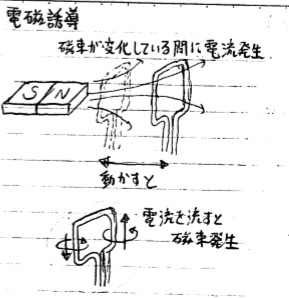 電磁誘導
磁束が変化している間に電流発生
S N
動かすと
電流を流すと
磁束発生